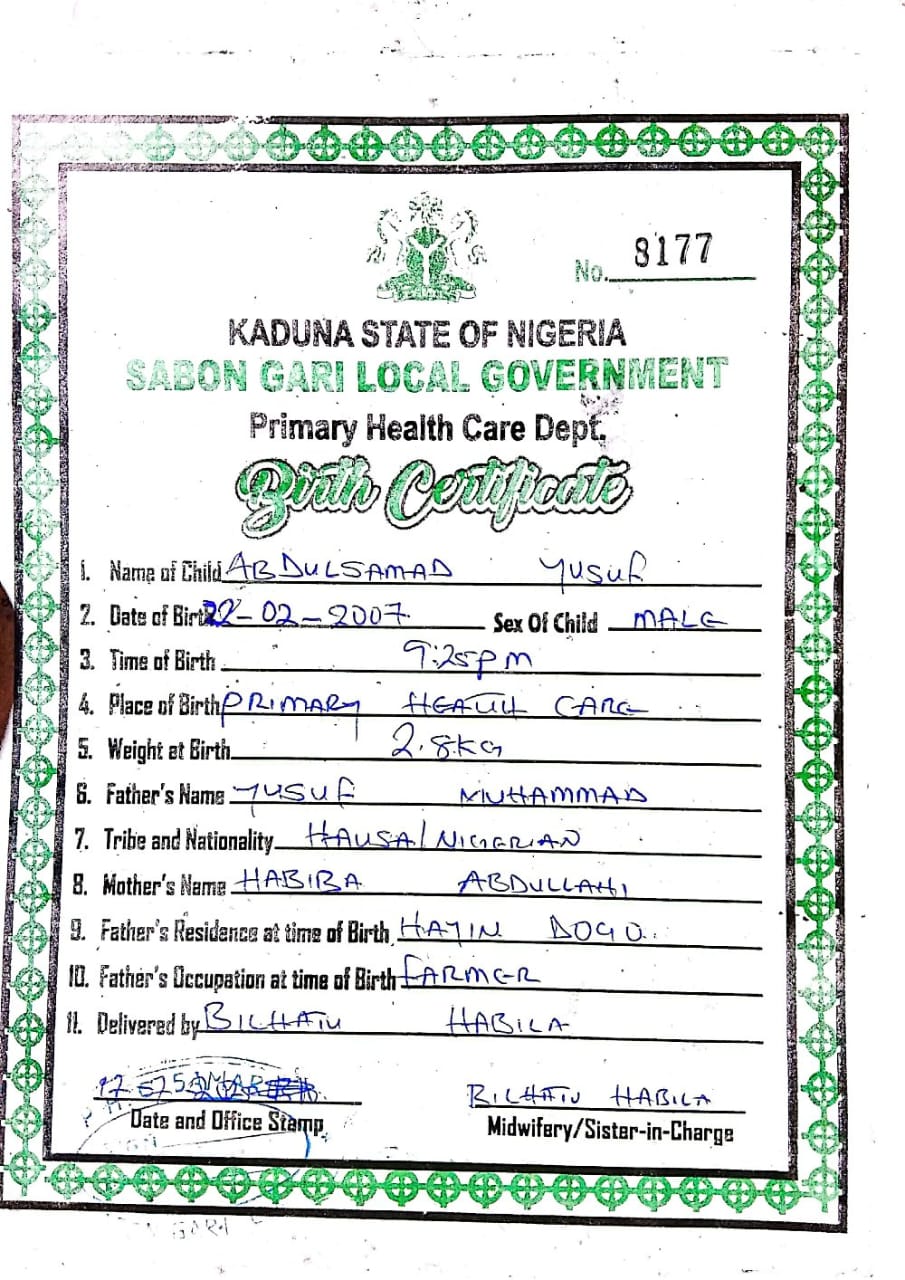 No. 8177
KADUNA STATE OF NIGERIA
SABON GARI LOCAL GOVERNMENT
Primary Health Care Dept.
Birth Certificate
1. Name of Child ABDULSAMAD Yusuf
2. Date of Birth 22-02-2007 Sex Of Child MALE
3. Time of Birth 9:25pm
4. Place of Birth PRIMARY HEALTH CARE
5. Weight at Birth 2.8KG
6. Father's Name Yusuf MUHAMMAD
7. Tribe and Nationality HAUSA/NIGERIAN
8. Mother's Name HABIBA ABDULLAHI
9. Father's Residence at time of Birth HAYIN DOGO.
10. Father's Occupation at time of Birth FARMER
11. Delivered by BILHATU HABILA
BILHATU HABILA
Date and Office Stamp
Midwifery/Sister-in-Charge